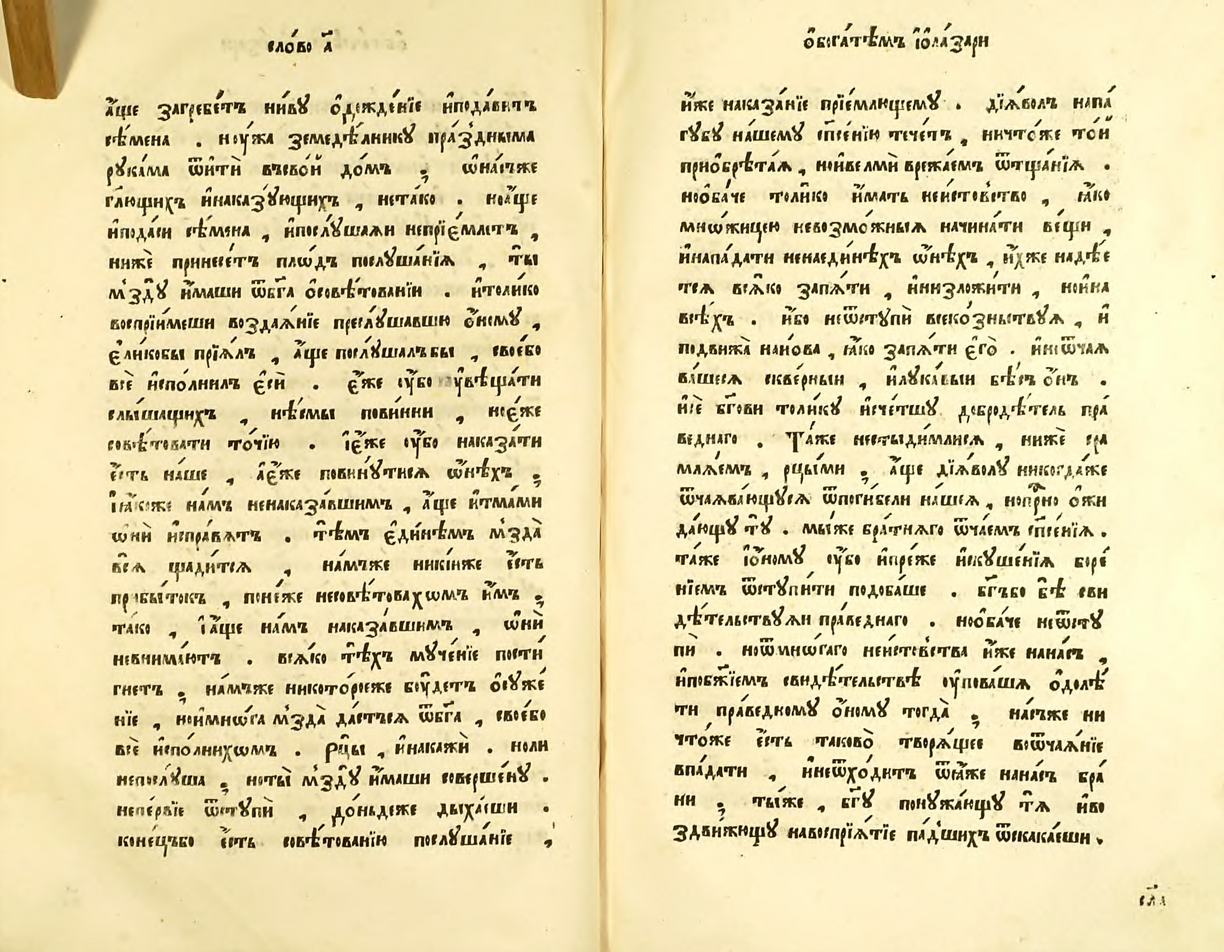 сло́во а҃
а҆́ще загребе́тъ ни́вꙋ ѻ҆дежде́нїе и҆пода́витъ
сѣ́мена . нꙋ́жа земедѣ́лникꙋ пра́здныма
рꙋка́ма ѿи́ти въсво́й до́мъ ; ѡ҆на́съже
гл҃ющихъ и҆наказꙋ́ющихъ , нета́ко . ноа҆́ще
и҆пода́си сѣ́мена , и҆послꙋ́шаѧи непрїе́млитъ ,
нижѐ принесе́тъ пло́дъ послꙋша́нїѧ , ты̀
мъздꙋ̀ и҆́маши ѿбг҃а ѻ҆совѣ́тованїи . и҆толи́ко
воспрїи́меши воздаѧ́нїе преслꙋ́шавшю ѻ҆́номꙋ ,
є҆ли́кобы прїѧ́лъ , а҆́ще послꙋ́шалъбы , своѐбо
всѐ и҆спо́лнилъ є҆сѝ . є҆́же ᲂу҆́бо ᲂу҆вѣща́ти
слы́шащихъ , нѣ́смы пови́нни , ноє҆́же
совѣ́товати то́чїю . і҆є҆́же ᲂу҆́бо наказа́ти
є҆́сть на́ше , а҆є҆́же повинꙋ́тисѧ ѡ҆нѣ́хъ ;
ꙗ҆́коже на́мъ ненаказа́вшимъ , а҆́ще и҆тма́ми
ѡ҆нѝ и҆спра́вѧтъ . тѣ́мъ є҆ди́нѣмъ мъзда̀
всѧ̀ щади́тсѧ , на́мъже ники́иже є҆́сть
прибы́токъ , поне́же несовѣ́товахѡмъ и҆̀мъ ;
та́ко , і҆а҆́ще на́мъ наказа́вшимъ , ѡ҆нѝ
невнима́ютъ . всѧ́ко тѣ́хъ мꙋче́нїе пости́
гнетъ ; на́мъже никото́роеже бꙋ́детъ ѻ҆сꙋжде́
нїе , ноимно́га мъзда̀ да́стьсѧ ѿбг҃а , своѐбо
всѐ и҆спо́лнихѡмъ . Рцы̀ , и҆накажѝ . ноли
непослꙋ́ша ; ноты̀ мъздꙋ̀ и҆́маши соверше́нꙋ .
непе́рвїе ѿстꙋпѝ , до́ньдеже дыха́еши .
коне́цъбо є҆́сть совѣ́тованїю послꙋша́нїе ,
ѻ҆бога́тѣмъ і҆ѻ҆ла́зари
и҆́же наказа́нїе прїе́млющемꙋ . дїѧ́волъ напа́
гꙋбꙋ на́шемꙋ сп҃се́нїю тече́тъ , ничто́же то́й
приѻбрѣта́ѧ , нои҆велмѝ врежа́емъ ѿтща́нїѧ .
ноѻ҆ба́че толи́ко и҆́мать неи́стовство , ꙗ҆́ко
мно́жицею невозмо́жныѧ начина́ти ве́щи ,
и҆напа́дати ненаеди́нѣхъ ѡ҆нѣ́хъ , и҆́хже надѣ́е
тсѧ всѧ́ко запѧ́ти , и҆низложи́ти , нои҆на
всѣ́хъ . и҆́бо неѿстꙋпѝ всеко́зньствꙋѧ , и҆
подви́жа нано́ва , ꙗ҆́ко запѧ́ти є҆го̀ . и҆неѿча́ѧ
вашесѧ скве́рныи , и҆лꙋка́выи бѣ́съ ѻ҆́нъ .
и҆сѐ бг҃ови толи́кꙋ и҆сче́тшꙋ добродѣ́тель пра́
веднаго . Та́же несты́димлисѧ , нижѐ сра
млѧ́емъ , рцы́ми ; а҆́ще дїѧ́волꙋ никогда́же
ѿчаѧва́ющꙋсѧ ѿпоги́бели на́шеѧ , нопр́но ѻ҆жи
да́ющꙋ тꙋ̀ . мы́же бра́тнѧго ѿча́емъ сп҃се́нїѧ .
та́же і҆ѻ҆́номꙋ ᲂу҆́бо и҆пре́же и҆скꙋше́нїѧ боре́
нїемъ ѿстꙋпи́ти подоба́ше . бг҃ъбо бѣ̀ сви
дѣ́тельствꙋѧи пра́веднаго . ноѻ҆ба́че неѿстꙋ
пѝ . ноѿмно́гаго неи́стовства и҆́же нана́съ ,
и҆побж҃їемъ свидѣ́тельствѣ ᲂу҆пова́шѧ ѻ҆долѣ́
ти пра́ведномꙋ ѻ҆́номꙋ тогда̀ ; на́съже ни
что́же є҆́сть таково̀ творѧ́щее воѿча́ѧнїе
впа́дати , и҆неѿхо́дитъ ѿѧ́же нана́съ бра́
ни ; ты́же , бг҃ꙋ понꙋжа́ющꙋ тѧ̀ и҆во
здви́жющꙋ навоспрїѧ́тїе па́дшихъ ѿскака́еши .
сла